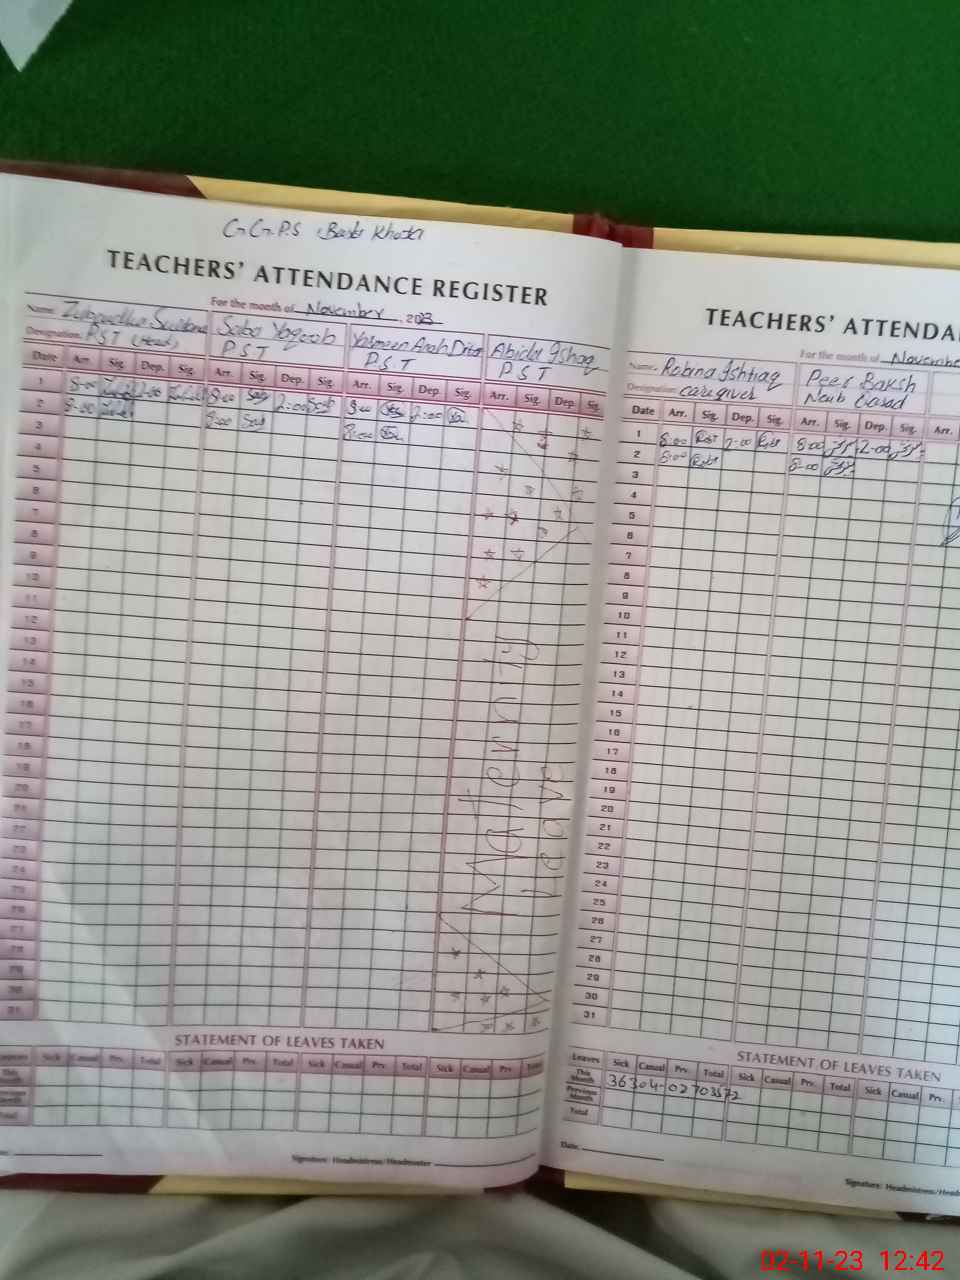 G.G.P.S Basti Khata
TEACHERS' ATTENDANCE REGISTER
For the month of November, 2023
Name. Saba Yaqoob Yasmeen Arah Abida Ishaq
Designation. P.S.T (Head) P.S.T P.S.T P S T
Date Arr. Sig. Dep. Sig. Arr. Sig. Dep. Sig. Arr. Sig. Dep. Sig. Arr. Sig. Dep. Sig.
1 8-00 2-00 8-00 2-00 8-00 2-00
2 8-00 8-00 8-00
3
4
5
6
7
8
9
10
11
12
13
14
15
16
17
18
19
20
21
22
23
24
25
26
27
28
29
30
31
Maternity
Leave
STATEMENT OF LEAVES TAKEN
Leaves Sick Casual Prv. Total Sick Casual Prv. Total Sick Casual Prv. Total Sick Casual Prv. Total
This Month
Previous Month
Total
Signature: Headmistress/Headmaster
TEACHERS' ATTENDA
For the month of November
Name. Robina Ishtiaq Peer Baksh
Designation. caregiver Naib Qasad
Date Arr. Sig. Dep. Sig. Arr. Sig. Dep. Sig. Arr.
1 8:00 2-00 8:00 2-00
2 8:00 8-00
3
4
5
6
7
8
9
10
11
12
13
14
15
16
17
18
19
20
21
22
23
24
25
26
27
28
29
30
31
STATEMENT OF LEAVES TAKEN
Leaves Sick Casual Prv. Total Sick Casual Prv. Total Sick Casual Prv.
This Month 36304-02703572
Previous Month
Total
Date:
Signature: Headmistress/Head
02-11-23 12:42